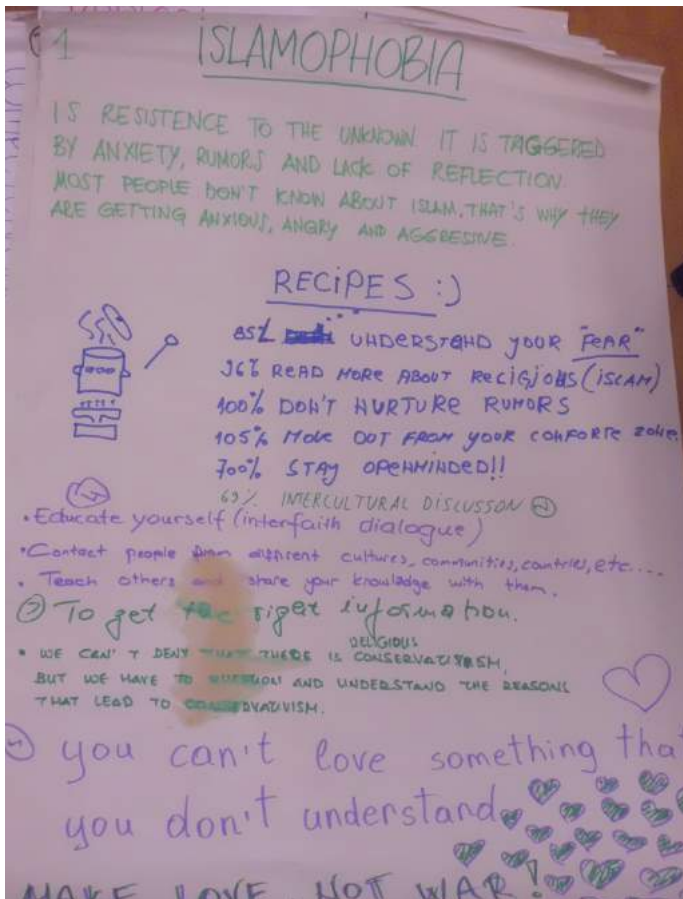 1 ISLAMOPHOBIA
IS RESISTENCE TO THE UNKNOWN. IT IS TAGGERED
BY ANXIETY, RUMORS AND LACK OF REFLECTION.
MOST PEOPLE DON'T KNOW ABOUT ISLAM, THAT'S WHY THEY
ARE GETTING ANXIOUS, ANGRY AND AGGRESIVE.
RECIPES :)
85% UNDERSTAND YOUR "FEAR"
96% READ MORE ABOUT RECIGJONS (ISLAM)
100% DON'T NURTURE RUMORS
105% MOVE OUT FROM YOUR COMFORTE ZONE
700% STAY OPENMINDED!!
69% INTERCULTURAL DISCUSSON
• Educate yourself (interfaith dialogue)
• Contact people from different cultures, communities, countries, etc....
• Teach others and share your knowledge with them.
To get the right information.
RELIGIOUS
• WE CAN'T DENY THAT THERE IS CONSERVATIVISM,
BUT WE HAVE TO QUESTION AND UNDERSTAND THE REASONS
THAT LEAD TO CONSERVATIVISM.
you can't love something that
you don't understand
MAKE LOVE NOT WAR!